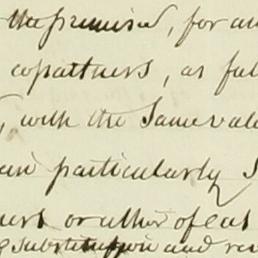 the premises, for an
copartners, as ful
, with the Same val
particularly S
or other of eas
substitution and rev